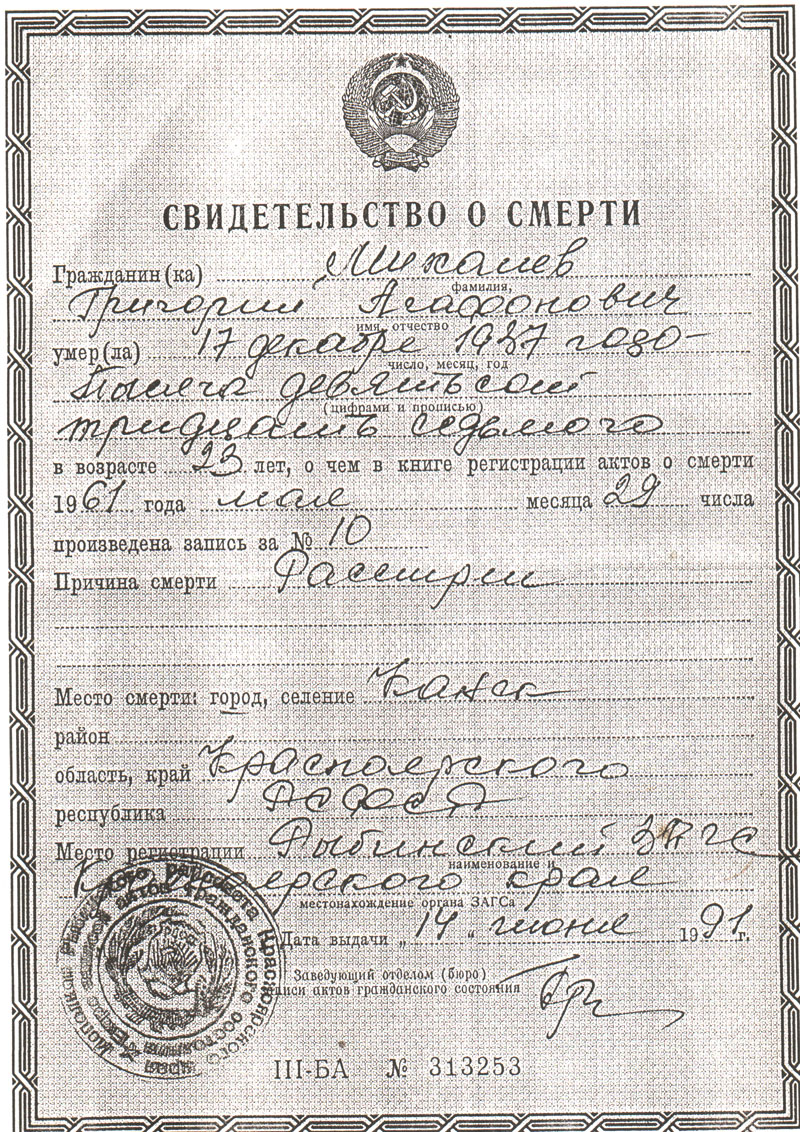 СВИДЕТЕЛЬСТВО О СМЕРТИ
Гражданин(ка) Михалев
фамилия,
Григорий Агафонович
имя, отчество
умер(ла) 17 декабря 1937 года
число, месяц, год
тысяча девятьсот
(цифрами и прописью)
тридцать седьмого
в возрасте 23 лет, о чем в книге регистрации актов о смерти
1961 года мая месяца 29 числа
произведена запись за № 10
Причина смерти Расстрел
Место смерти: город, селение Канск
район
область, край Красноярского
республика РСФСР
Место регистрации Рыбинский ЗАГС
наименование и
Красноярского края
местонахождение органа ЗАГСа
Дата выдачи „14“ июня 1991г.
Заведующий отделом (бюро)
записи актов гражданского состояния
III-БА № 313253